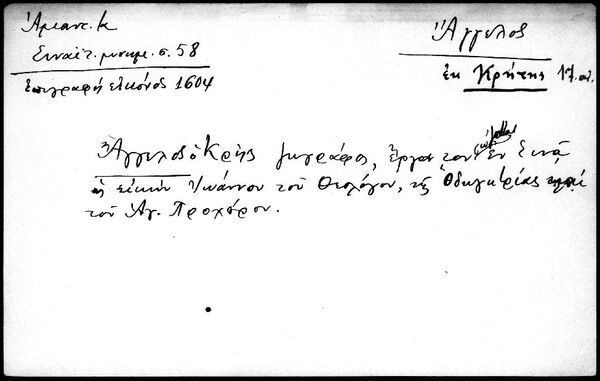 Ἀμαντ. Κ
Σιναϊτ. μνημ. σ. 58
Ἐπιγραφή εἰκόνος 1604
Ἄγγελος
ἐκ Κρήτης 17 αι.
Ἄγγελος ὁ Κρής ζωγράφος, ἔργα του σώζονται ἐν Σινᾷ
ἡ εἰκών Ἰωάννου τοῦ Θεολόγου, τῆς Ὁδηγητρίας καί
τοῦ Ἁγ. Προχόρου.